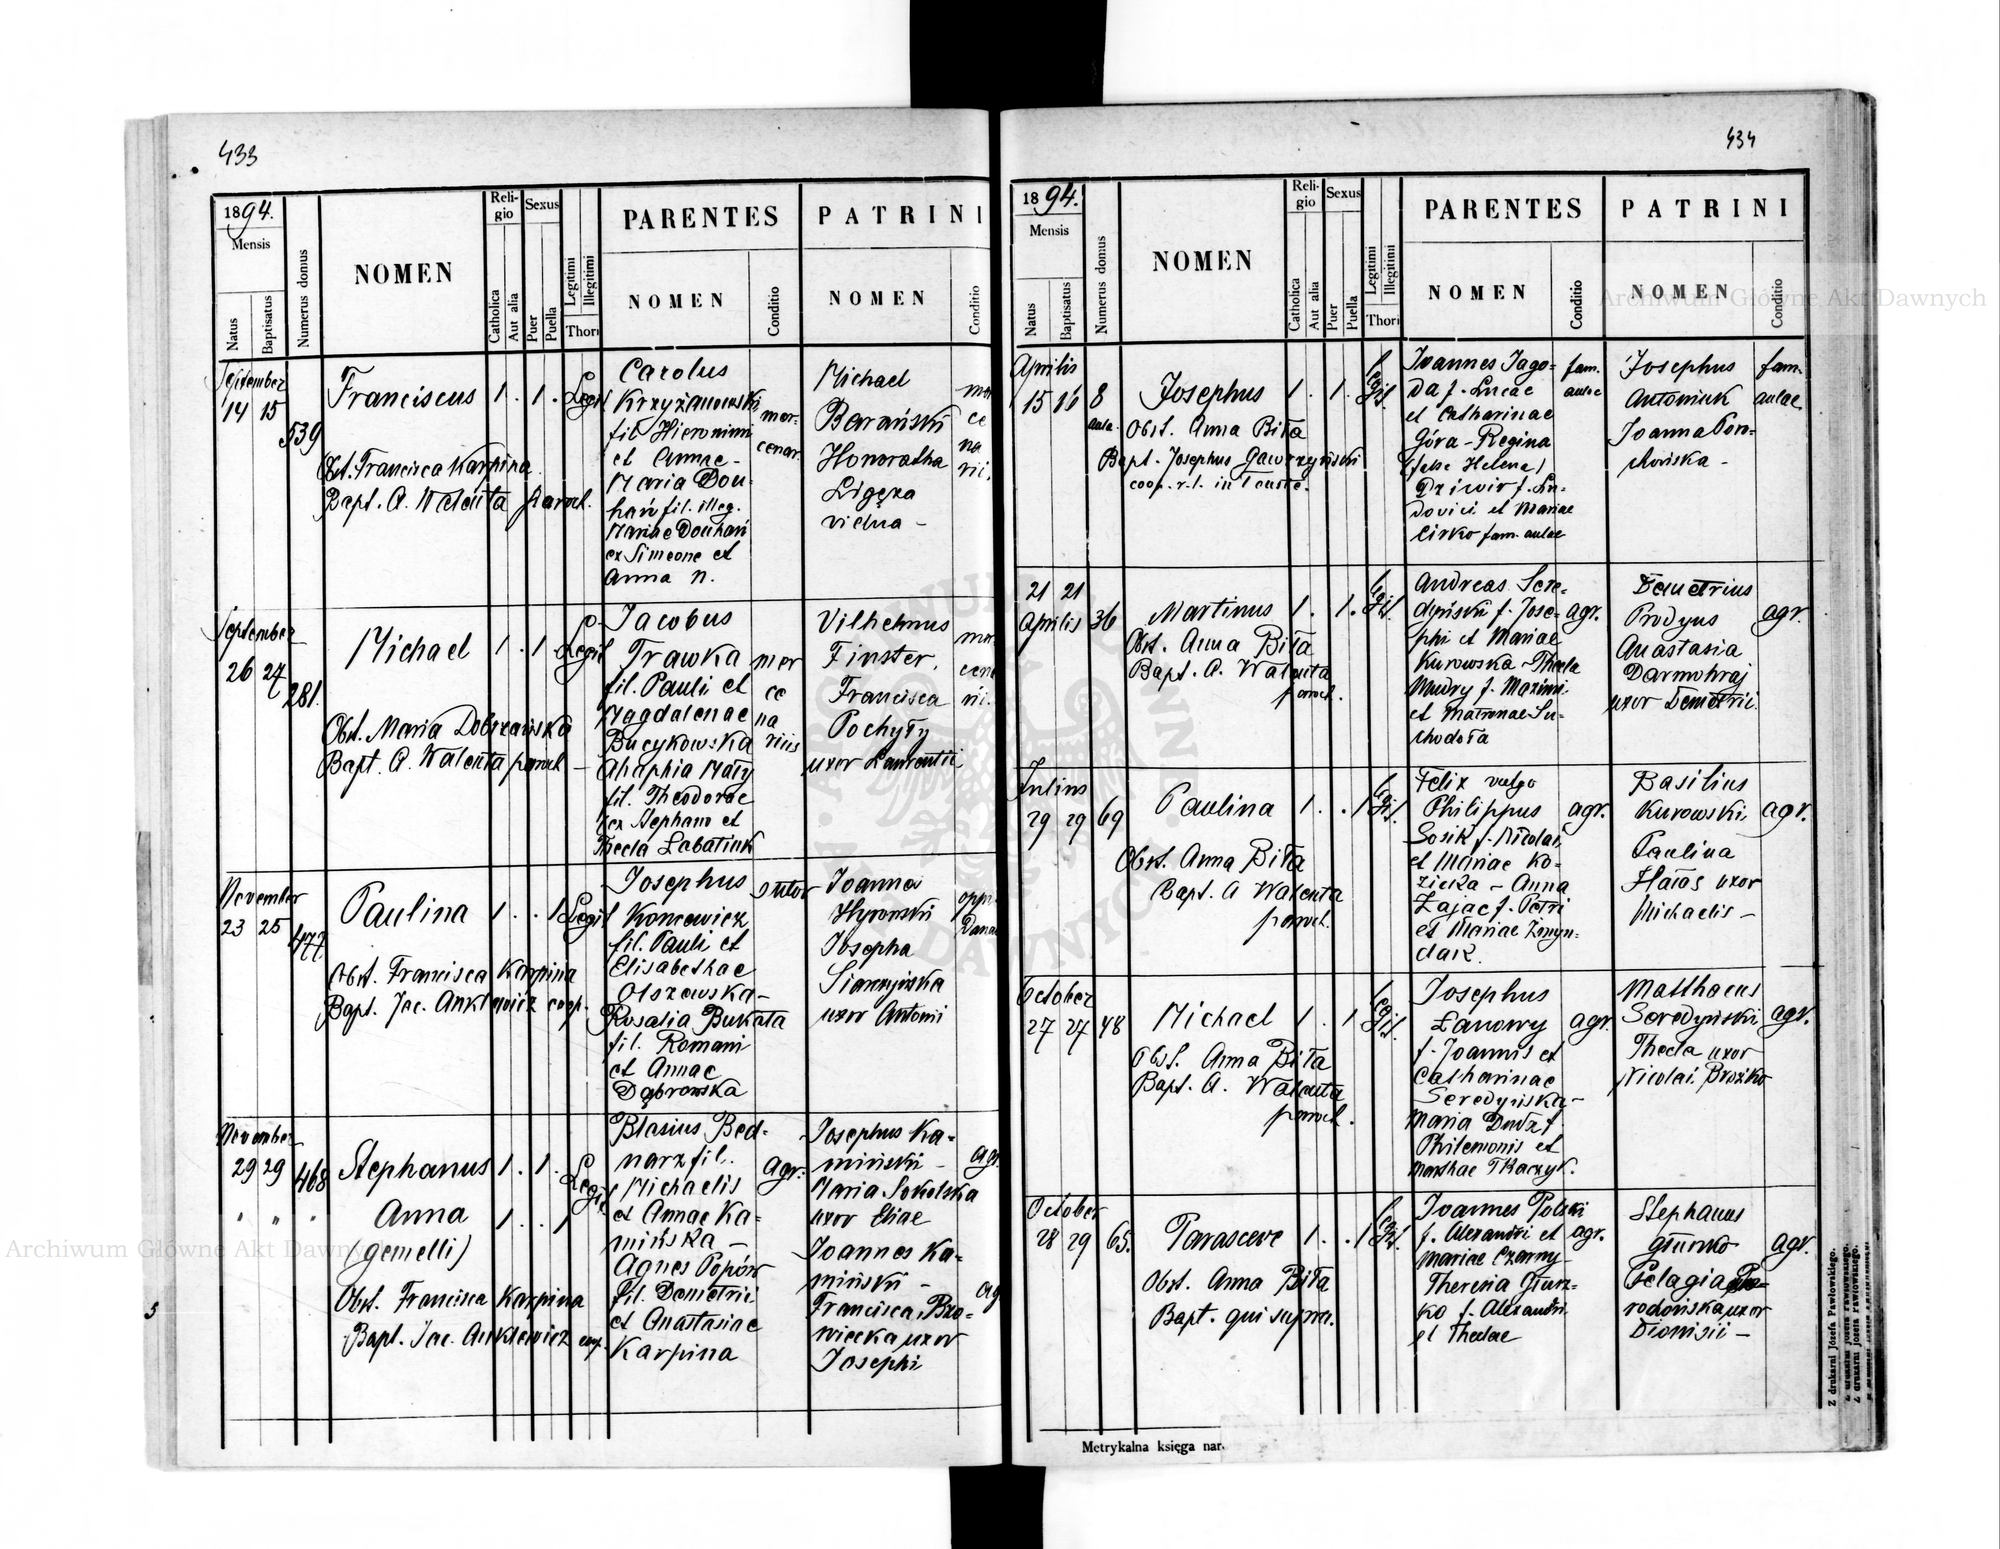 433
1894.
Mensis
Natus
Baptisatus
Numerus domus
NOMEN
Religio
Catholica
Aut alia
Sexus
Puer
Puella
Legitimi
Illegitimi
Thori
PARENTES
NOMEN
Conditio
PATRINI
NOMEN
Conditio
September
14 15
539
Franciscus
1 . 1 .
Legit
Obst. Francisca Karpina
Bapt. A. Walenta paroch.
Carolus
Krzyżanowski
fil Hieronimi
et Annae -
Maria Dou-
hań fil. illeg.
Mariae Douhań
ex Simeone et
Anna n.
mer-
cenar.
Michael
Barański
Honoratha
Ligęza
vidua -
ce
na
rii.
September
26 27
281.
Michael
1 . 1 .
Legit
Obst. Maria Dobrzańska
Bapt. A. Walenta paroch -
Jacobus
Trawka
fil. Pauli et
Magdalenae
Bucykowska
Ahaphia Mały
fil. Theodorae
ex Stephano et
Thecla Łabatiuk
mer
ce
na
riis
Vilhelmus
Finster.
Francisca
Pochyły
uxor Laurentii
November
23 25
477.
Paulina
1 . . 1
Legit
Obst. Francisca Karpina
Bapt. Jac. Ankiewicz coop.
Josephus
Koncewicz
fil. Pauli et
Elisabethae
Olszowska -
Rosalia Bukata
fil. Romani
et Annae
Dąbrowska
sutor
Joannes
Josepha
uxor Antoni
November
29 29
468
Stephanus
1 . 1 .
Legit
" " "
Anna
1 . . 1
(gemelli)
Obst. Francisca Karpina
Bapt. Jac. Ankiewicz coop.
Blasius Bed-
narz fil.
Michaelis
et Annae Ka-
mińska -
Agnes Popów
fil. Demetrii
et Anastasiae
Karpina
agr.
Josephus Ka-
miński -
Maria Sokolska
uxor Eliae
Joannes Ka-
miński -
Francisca Bro-
wiecka uxor
Josephi
agr.
434
1894.
Mensis
Natus
Baptisatus
Numerus domus
NOMEN
Religio
Catholica
Aut alia
Sexus
Puer
Puella
Legitimi
Illegitimi
Thori
PARENTES
NOMEN
Conditio
PATRINI
NOMEN
Conditio
Aprilis
15 16 8
aulae.
Josephus
1 . 1 .
Legit.
Obst. Anna Biła
Bapt. Josephus Gawrzyński
coop. r. l. in Touste.
Joannes Jago-
da f. Lucae
et Catharinae
Góra - Regina
(false Helena)
Dziwir f. Lu-
dovici et Mariae
Cirko fam. aulae
fam.
aulae
Josephus
Antoniuk
Joanna Por-
chońska -
fam.
aulae
21 21
Aprilis 36
Martinus
1 . 1 .
Legit.
Obst. Anna Biła
Bapt. A. Walenta
paroch.
Andreas Sere-
dyński f. Jose-
phi et Mariae
Kurowska - Thecla
Mudry f. Maximi
et Matronae Su-
chodoła
agr.
Demetrius
Prodyus
Anastasia
Darmohraj
uxor Demetrii.
agr.
Julius
29 29 69
Paulina
1 . . 1
Legit.
Obst. Anna Biła
Bapt. A Walenta
paroch.
Felix vulgo
Philippus
Sosik f. Nicolai
et Mariae Ko-
zicka - Anna
Zając f. Petri
et Mariae Zmyn-
dak.
agr.
Basilius
Kurowski
Paulina
Hałas uxor
Michaelis -
agr.
October
27 27 48
Michael
1 . 1
Legit.
Obst. Anna Biła
Bapt. A. Walenta
paroch.
Josephus
Łanowy
f. Joannis et
Catharinae
Seredyńska -
Maria Dudz f.
Philemonis et
Marthae Tkaczyk.
agr.
Matthaeus
Seredyński
Thecla uxor
Nicolai Brożko
agr.
October
28 29 65.
Parasceve
1 . . 1
Legit.
Obst. Anna Biła
Bapt. qui supra.
Joannes Polski
f. Alexandri et
Mariae Czarny
Theresia Głusz-
ko f. Alexandri
et Theclae
agr.
Stephanus
Głuszko
Pelagia
rodońska uxor
Dionisii -
agr.
Metrykalna księga nar.
Z drukarni Józefa Pawłowskiego.
Archiwum Główne Akt Dawnych
Archiwum Główne Akt Dawnych